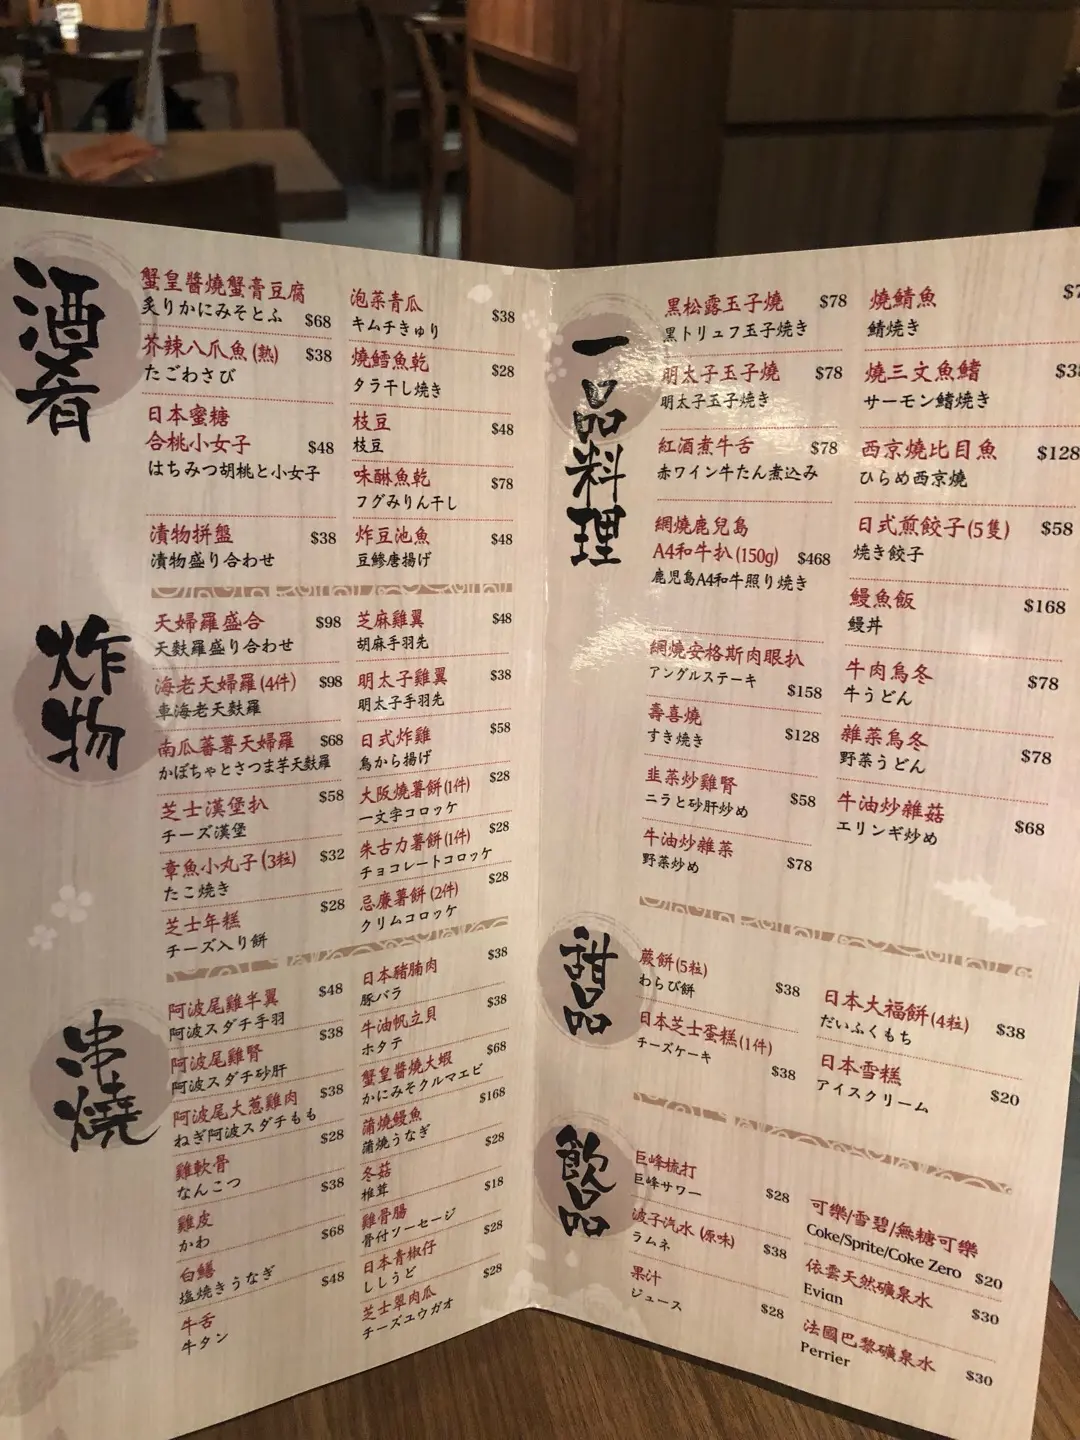 酒肴
蟹皇醬燒蟹膏豆腐
炙りかにみそとふ $68
芥辣八爪魚(熟) $38
たごわさび
日本蜜糖
合桃小女子 $48
はちみつ胡桃と小女子
漬物拼盤 $38
漬物盛り合わせ
泡菜青瓜 $38
キムチきゅり
燒鱈魚乾 $28
タラ干し焼き
枝豆 $48
枝豆
味醂魚乾 $78
フグみりん干し
炸豆池魚 $48
豆鯵唐揚げ
炸物
天婦羅盛合 $98
天麩羅盛り合わせ
海老天婦羅(4件) $98
車海老天麩羅
南瓜蕃薯天婦羅 $68
かぼちゃとさつま芋天麩羅
芝士漢堡扒 $58
チーズ漢堡
章魚小丸子(3粒) $32
たこ焼き
芝士年糕 $28
チーズ入り餅
芝麻雞翼 $48
胡麻手羽先
明太子雞翼 $38
明太子手羽先
日式炸雞 $58
鳥から揚げ
大阪燒薯餅(1件) $28
一文字コロッケ
朱古力薯餅(1件) $28
チョコレートコロッケ
忌廉薯餅(2件) $28
クリムコロッケ
串燒
阿波尾雞半翼 $48
阿波スダチ手羽
阿波尾雞腎 $38
阿波スダチ砂肝
阿波尾大葱雞肉 $38
ねぎ阿波スダチもも
雞軟骨 $28
なんこつ
雞皮 $38
かわ
白鱔 $68
塩焼きうなぎ
牛舌 $48
牛タン
日本豬腩肉 $38
豚バラ
牛油帆立貝 $38
ホタテ
蟹皇醬燒大蝦 $68
かにみそクルマエビ
蒲燒鰻魚 $168
蒲焼うなぎ
冬菇 $28
椎茸
雞骨腸 $18
骨付ソーセージ
日本青椒仔 $28
ししうど
芝士翠肉瓜 $28
チーズユウガオ
一品料理
黑松露玉子燒 $78
黒トリュフ玉子焼き
明太子玉子燒 $78
明太子玉子焼き
紅酒煮牛舌 $78
赤ワイン牛たん煮込み
網燒鹿兒島
A4和牛扒(150g) $468
鹿児島A4和牛照り焼き
網燒安格斯肉眼扒
アングルステーキ $158
壽喜燒 $128
すき焼き
韭菜炒雞腎 $58
ニラと砂肝炒め
牛油炒雜菜 $78
野菜炒め
燒鯖魚
鯖焼き
燒三文魚鰭
サーモン鰭焼き
西京燒比目魚 $128
ひらめ西京燒
日式煎餃子(5隻) $58
焼き餃子
鰻魚飯 $168
鰻丼
牛肉烏冬 $78
牛うどん
雜菜烏冬 $78
野菜うどん
牛油炒雜菇 $68
エリンギ炒め
甜品
蕨餅(5粒) $38
わらび餅
日本芝士蛋糕(1件) $38
チーズケーキ
日本大福餅(4粒) $38
だいふくもち
日本雪糕 $20
アイスクリーム
飲品
巨峰梳打 $28
巨峰サワー
波子汽水(原味) $38
ラムネ
果汁 $28
ジュース
可樂/雪碧/無糖可樂
Coke/Sprite/Coke Zero $20
依雲天然礦泉水 $30
Evian
法國巴黎礦泉水 $30
Perrier